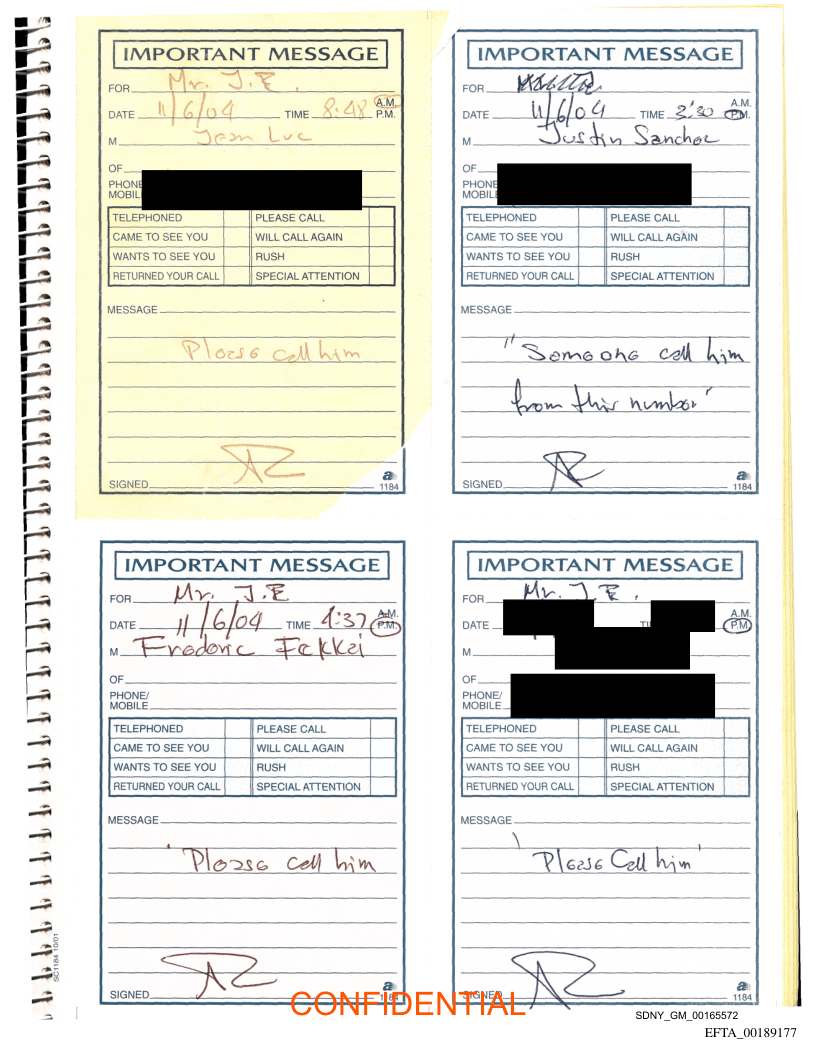 IMPORTANT MESSAGE
FOR Mr. J.E.
A.M.
DATE 11/6/04 TIME 8:48 P.M.
M Jean Luc
OF
PHONE
MOBIL
TELEPHONED PLEASE CALL
CAME TO SEE YOU WILL CALL AGAIN
WANTS TO SEE YOU RUSH
RETURNED YOUR CALL SPECIAL ATTENTION
MESSAGE
Please call him
SIGNED
a
1184
IMPORTANT MESSAGE
FOR
A.M.
DATE 11/6/04 TIME 2:30 P.M.
M Justin Sanchez
OF
PHONE
MOBIL
TELEPHONED PLEASE CALL
CAME TO SEE YOU WILL CALL AGAIN
WANTS TO SEE YOU RUSH
RETURNED YOUR CALL SPECIAL ATTENTION
MESSAGE
"Someone call him
from this number"
SIGNED
a
1184
IMPORTANT MESSAGE
FOR Mr. J.E
A.M.
DATE 11/6/04 TIME 4:37 P.M.
M Frederic Fekkai
OF
PHONE/
MOBILE
TELEPHONED PLEASE CALL
CAME TO SEE YOU WILL CALL AGAIN
WANTS TO SEE YOU RUSH
RETURNED YOUR CALL SPECIAL ATTENTION
MESSAGE
'Please call him
SIGNED
a
1184
IMPORTANT MESSAGE
FOR Mr. J.E.
A.M.
DATE TI P.M.
M
OF
PHONE/
MOBILE
TELEPHONED PLEASE CALL
CAME TO SEE YOU WILL CALL AGAIN
WANTS TO SEE YOU RUSH
RETURNED YOUR CALL SPECIAL ATTENTION
MESSAGE
'Please Call him'
SIGNED
a
1184
SC1184 10/01
CONFIDENTIAL
SDNY_GM_00165572
EFTA_00189177